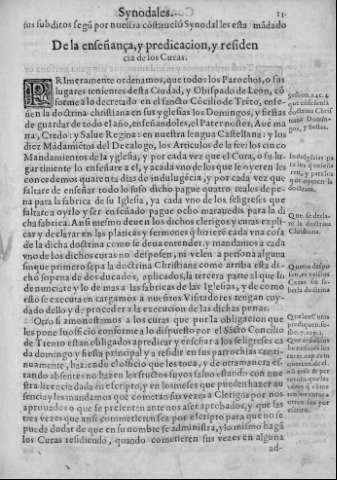 Synodales.
13
sus subditos segũ por nuestra cõstituciõ Synodal les esta mãdado
De la enseñança, y predicacion, y residen
cia de los Curas.
PRimeramente ordenamos, que todos los Parochos, o sus
lugares tenientes desta Ciudad, y Obispado de Leon, cõ
forme a lo decretado en el sancto Cõcilio de Trẽto, ense-
ñen la doctrina christiana en sus yglesias los Domingos, y fiestas
de guardar de todo el año, enseñandoles, el Pater noster, Aue ma
ria, Credo: y Salue Regina: en nuestra lengua Castellana: y los
diez Mãdamiẽtos del Decalogo, los Articulos de la fee: los cinco
Mandamientos de la yglesia, y por cada vez que el Cura, o su lu-
gar tiniente lo enseñare a el, y a cada vno de los que lo oyeren les
concedemos quarenta dias de indulgẽcia, y por cada vez que
faltare de enseñar todo lo suso dicho pague quatro reales de pe-
na para la fabrica de su Iglesia, ya cada vno de los feligreses que
faltare a oyrlo y ser enseñado pague ocho marauedis para la di
cha fabrica. Ansi mesmo deuen los dichos clerigos y curas expli-
car y declarar en las platicas y sermones q̃ hizierẽ cada vna cosa
de la dicha doctrina como se deua entender, y mandamos a cada
vno de los dichos curas no desposen, ni velen a persona alguna
sin que primero sepa la doctrina Christiana como arriba esta di-
cho so pena de dos ducados, aplicados, la tercera parte al que lo
denunciare y lo de mas a las fabricas de las Iglesias, y de como
esto se executa encargamos a nuestros Visitadores tengan cuy-
dado dello y de proceder a la execucion de las dichas penas.
Otro si amonestamos a los curas que por la obligacion que
les pone su officio conforme a lo dispuesto por el Sãcto Concilio
de Trento estan obligados a predicar y enseñar a los feligreses ca
da domingo y fiesta principal y a residir en sus parrochias conti-
nuamente, haziendo el officio que les toca, y de ninguna manera es-
tando absentes no haren
tra licencia dada en escripto, y en los meses que pueden hazer au
sencia y les mandamos que cometan sus vezes a Clerigos por nos
aprouados o que se presenten ante nos a ser aprobados, y que las
tres vezes que ansi cometieren sea por escripto para que no se
pueda dudar de que en su nombre se administra, y lo mismo hagã
los Curas residiendo, quando cometieren sus vezes en alguna
ad-
que enseñen la
doctrina Christ.
iana Domin-
gos, y fiestas.
Indulgencias pa
ra los que enseñã
ren, y para los
que oyeren la
doctrina.
Que se decla-
re la doctrina
Christiana.
Que no despo-
sen, ni velen los
Curas sin sa-
berla doctrina